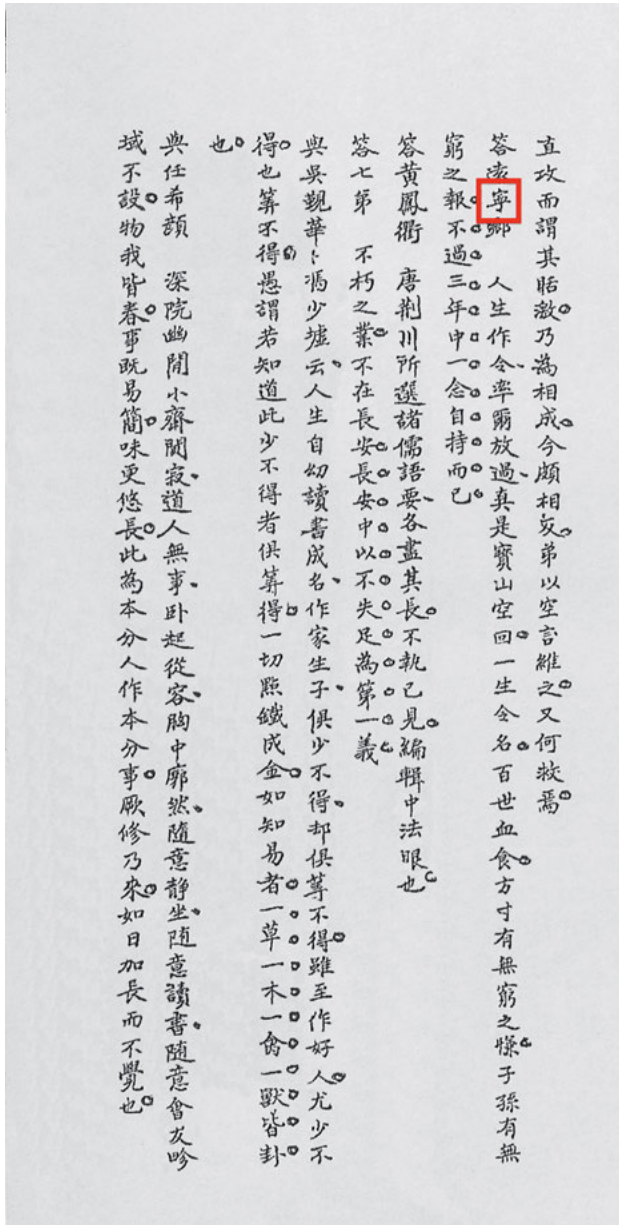 直攻而謂其恬激乃為相成今頗相反弟以空言維之又何救焉
答凌寧鄉　人生作令率爾放過真是寶山空回一生令名百世血食方寸有無窮之慊子孫有無
窮之報不過三年中一念自持而已
答黃鳳衢　唐荆川所選諸儒語要各盡其長不執己見編輯中法眼也
答七弟　不朽之業不在長安長安中以不失足為第一義
與吳觀華　馮少墟云人生自幼讀書成名作家生子俱少不得却俱算不得雖至作好人尤少不
得也算不得愚謂若知道此少不得者俱算得一切點鐵成金如知易者一草一木一禽一獸皆卦
也
與任希顏　深院幽閒小齋閴寂道人無事卧起從容胸中廓然隨意静坐隨意讀書隨意會友吟
域不設物我皆春事既易簡味更悠長此為本分人作本分事厥修乃來如日加長而不覺也